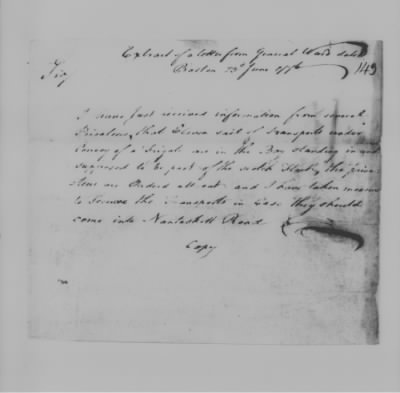 Extract of a letter from General Ward dated
Boston 23d June 1776
149
Sir
I have just received information from several
Privateers, that Eleven sail of Transports under
Convoy of a Frigate are in the Bay standing in and
supposed to be part of the scotch Fleet, the priva
teers are Ordered all out and I have taken measures
to secure the Transports in Case they should
come into Nantaskett Road
Copy